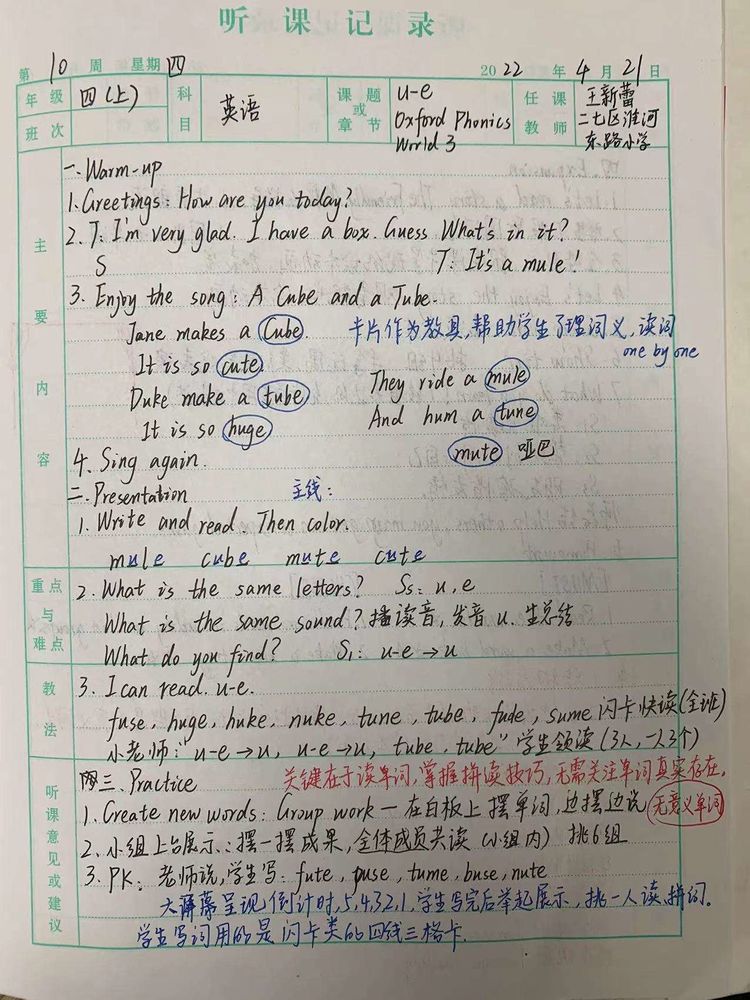 听课记录
第 10 周 星期 四 2022 年 4 月 21 日
年级 四(上) 科目 英语 课题或章节 u-e 任课教师 王新蕾
班次 Oxford Phonics 二七区淮河
World 3 东路小学
主要内容
一. Warm-up
1. Greetings: How are you today?
2. T: I'm very glad. I have a box. Guess What's in it?
S T: It's a mule!
3. Enjoy the song: A Cube and a Tube.
Jane makes a Cube. 卡片作为教具, 帮助学生了理词义, 读词
It is so cute. one by one
Duke make a tube They ride a mule
It is so huge And hum a tune
4. Sing again. mute 哑巴
二. Presentation 主线:
1. Write and read. Then color.
mule cube mute cute
重点与难点
2. What is the same letters? Ss: u, e
What is the same sound? 播读音, 发音 u. 生总结
What do you find? S1: u-e → u
教法
3. I can read. u-e.
fuse, huge, huke, nuke, tune, tube, fude, sume 闪卡快读(全班)
小老师: "u-e → u, u-e → u, tube, tube" 学生领读 (3人, 一人3个)
听课意见或建议
三. Practice 关键在于读单词, 掌握拼读技巧, 无需关注单词真实存在.
1. Create new words: Group work — 在白板上摆单词, 边摆边说 无意义单词
2. 小组上台展示: 摆一摆成果, 全体成员共读 (小组内) 挑6组
3. PK: 老师说, 学生写: fute, puse, tume, buse, nute
大屏幕呈现倒计时, 5,4,3,2,1, 学生写完后举起展示, 挑一人读、拼词.
学生写词用的是闪卡类的四线三格卡.